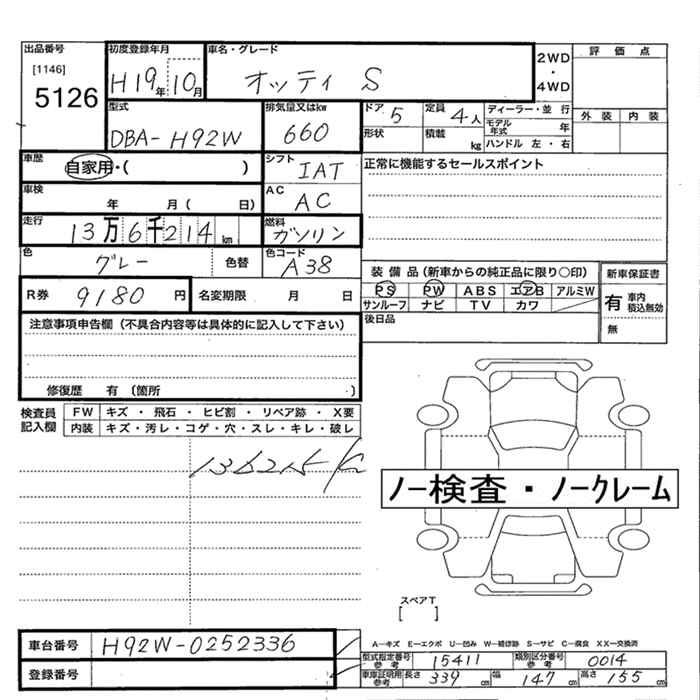 出品番号
[1146]
5126
初度登録年月
H19年10月
車名・グレード
オッティ S
2WD
・
4WD
評価点
外装 内装
型式
DBA-H92W
排気量又はkw
660
ドア 5
定員 4人
ディーラー・並行
形状
積載 kg
モデル年式 年
ハンドル 左・右
車歴
自家用・( )
シフト
IAT
正常に機能するセールスポイント
車検
年 月( 日)
AC
AC
走行
13万6千214km
燃料
ガソリン
色
グレー
色替
色コード
A38
装備品(新車からの純正品に限り○印)
新車保証書
PS PW ABS エアB アルミW
サンルーフ ナビ TV カワ
有 車内積込無効
無
R券 9180円
名変期限 月 日
後日品
注意事項申告欄(不具合内容等は具体的に記入して下さい)
修復歴 有(箇所 )
検査員記入欄
FW キズ・飛石・ヒビ割・リペア跡・X要
内装 キズ・汚レ・コゲ・穴・スレ・キレ・破レ
ノー検査・ノークレーム
スペアT
[ ]
車台番号
H92W-0252336
登録番号
A―キズ E―エクボ U―凹み W―補修跡 S―サビ C―腐食 XX―交換済
型式指定番号参考 15411
類別区分番号参考 0014
車庫証明用参考 長さ 339cm 幅 147cm 高さ 155cm